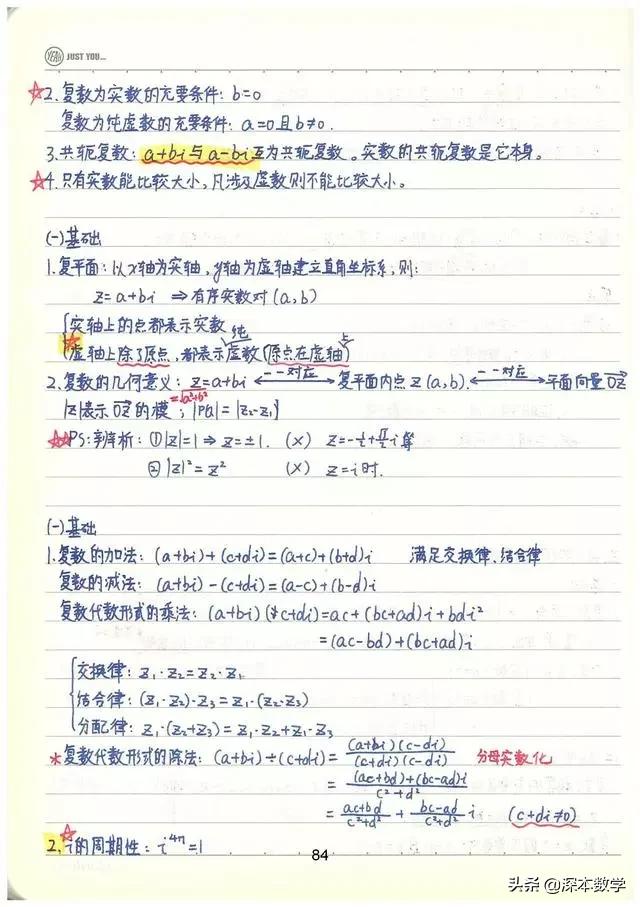 YEAH JUST YOU...
☆2. 复数为实数的充要条件: b=0
复数为纯虚数的充要条件: a=0且b≠0.
3. 共轭复数: a+bi与a-bi互为共轭复数。实数的共轭复数是它本身。
☆4. 只有实数能比较大小, 凡涉及虚数则不能比较大小。
(一)基础
1. 复平面: 以x轴为实轴, y轴为虚轴建立直角坐标系, 则:
z=a+bi ⇒有序实数对(a,b)
实轴上的点都表示实数
☆虚轴上除了原点, 都表示纯虚数(原点在虚轴上)
2. 复数的几何意义: z=a+bi ←一一对应→ 复平面内点Z(a,b) ←一一对应→ 平面向量OZ
|z|表示OZ的模 =√a²+b²; |PQ|=|z₂-z₁|
☆☆PS: 辨析: ①|z|=1⇒z=±1. (×) z=-½+√3/2 i等
②|z|²=z² (×) z=i时.
(一)基础
1. 复数的加法: (a+bi)+(c+di)=(a+c)+(b+d)i 满足交换律、结合律
复数的减法: (a+bi)-(c+di)=(a-c)+(b-d)i
复数代数形式的乘法: (a+bi)(c+di)=ac+(bc+ad)i+bdi²
=(ac-bd)+(bc+ad)i
交换律: z₁·z₂=z₂·z₁.
结合律: (z₁·z₂)·z₃=z₁·(z₂·z₃)
分配律: z₁·(z₂+z₃)=z₁·z₂+z₁·z₃
*复数代数形式的除法: (a+bi)÷(c+di)=(a+bi)(c-di)/(c+di)(c-di) 分母实数化
=(ac+bd)+(bc-ad)i/c²+d²
=ac+bd/c²+d² + bc-ad/c²+d² i (c+di≠0)
☆2. i的周期性: i⁴ⁿ=1
84
头条 @深本数学